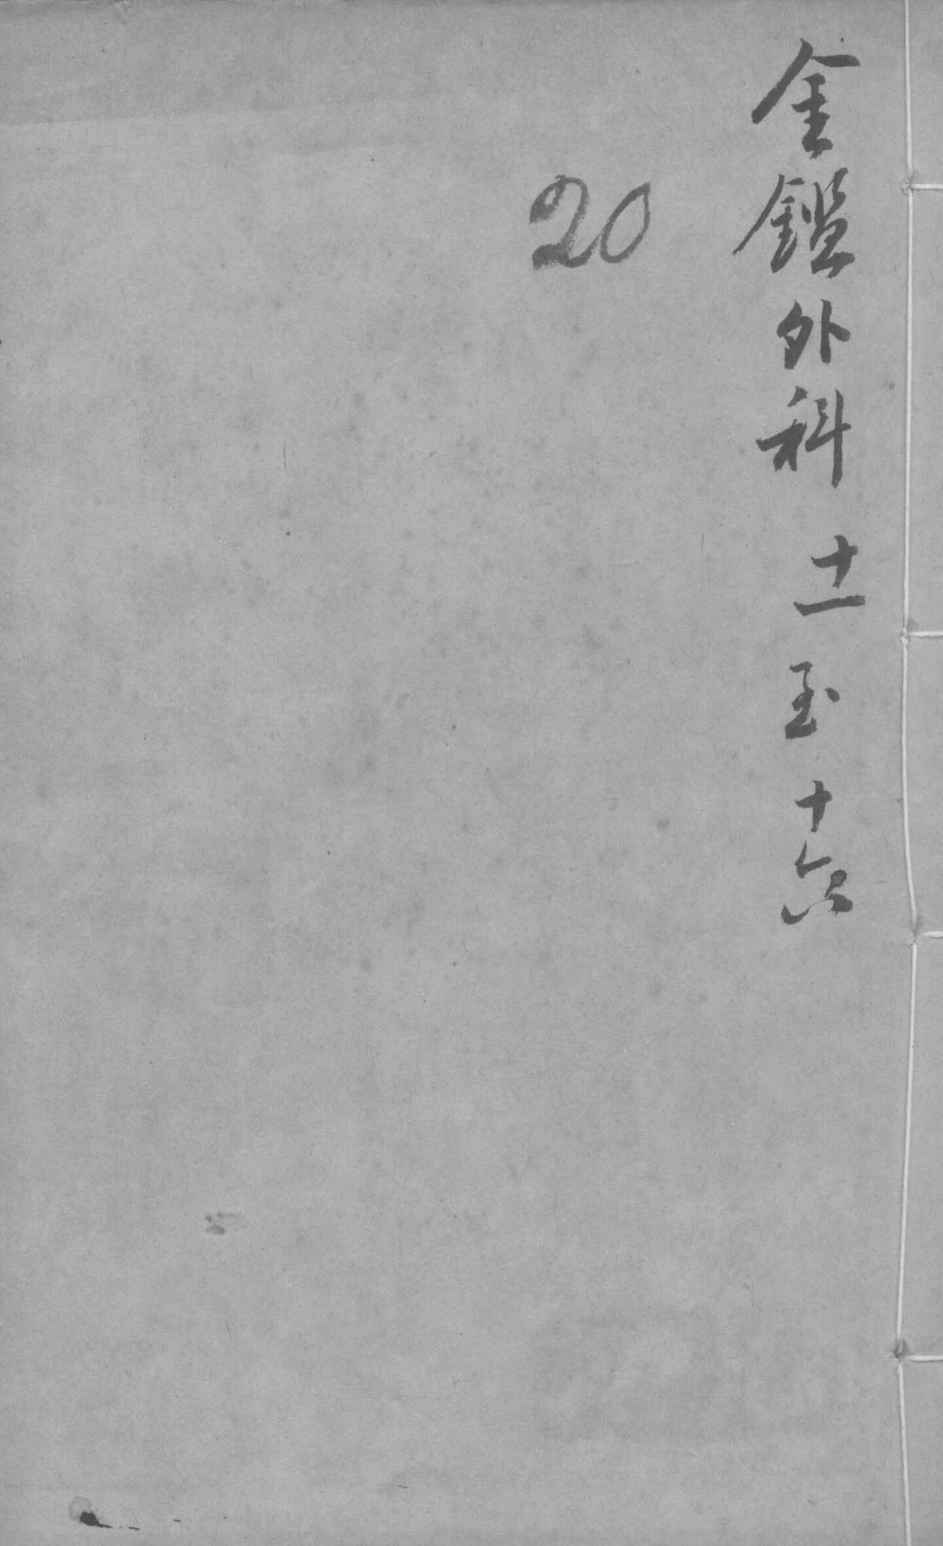 金鑑外科 十一至十六
20